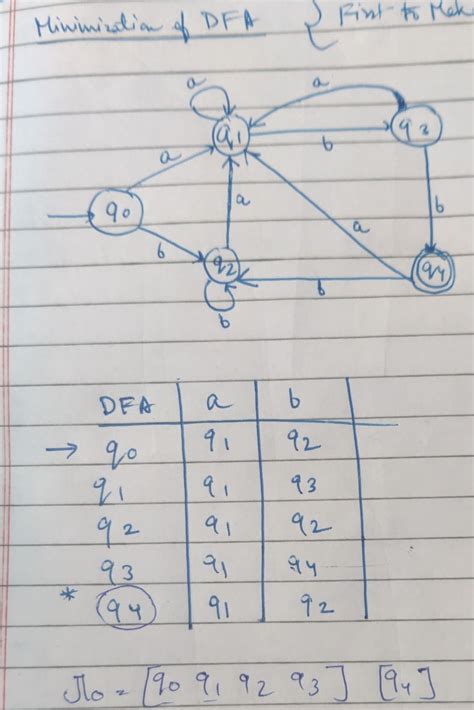 Minimization of DFA } First to Mak
a a
q1 b q3
a a a b
q0
b q2 b q4
b
DFA a b
→ q0 q1 q2
q1 q1 q3
q2 q1 q2
q3 q1 q4
* q4 q1 q2
π0 = [q0 q1 q2 q3] [q4]